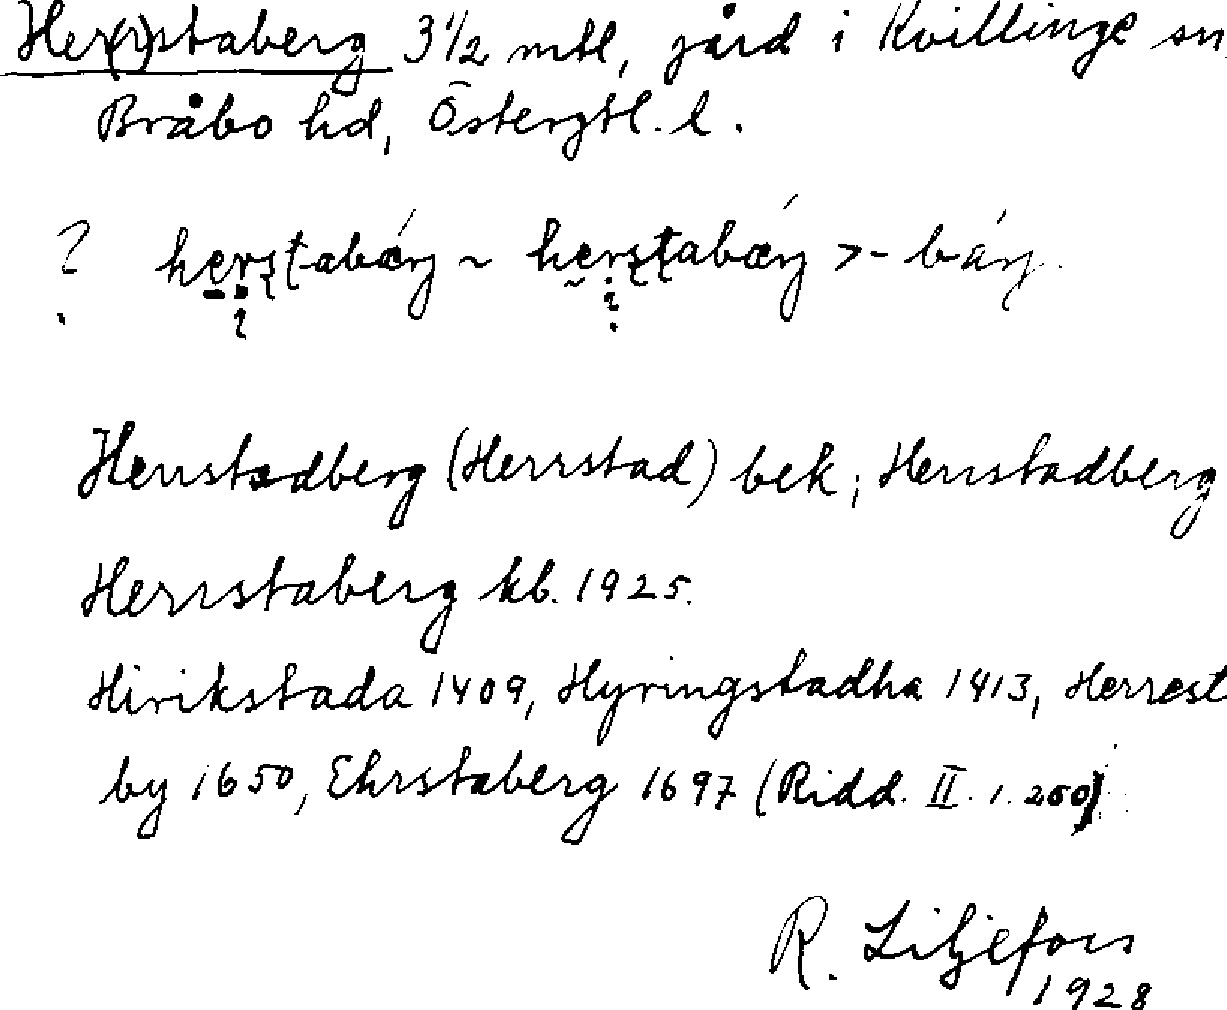 Her(r)staberg 3 1/2 mtl, gård i Kvillinge sn,
Bråbo hd, Östergtl. l.
? herstabärj ~ herstabärj > -bárj.
Herrstadberg (Herrstad) bek; Herrstadberg
Herrstaberg kb. 1925.
Hirikstada 1409, Hyringstadha 1413, Herrest
by 1650, Ehrstaberg 1697 (Ridd. II. 1. 260)
R. Liljefors
1928